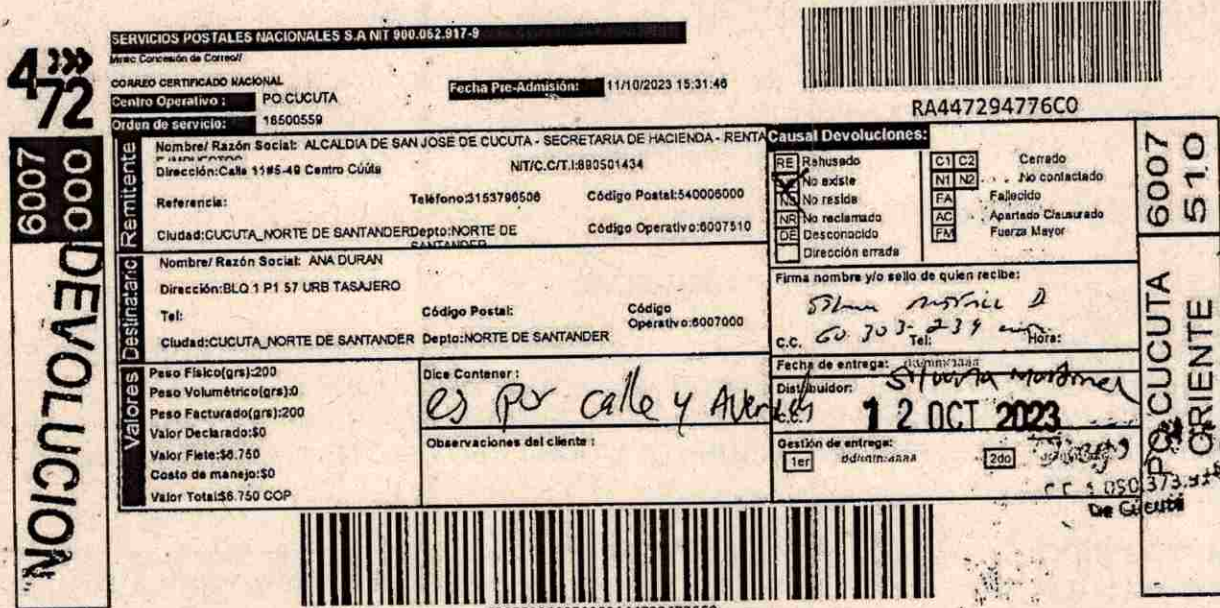 SERVICIOS POSTALES NACIONALES S.A NIT 900.062.917-9
Mintic Concesión de Correo//
CORREO CERTIFICADO NACIONAL
Centro Operativo : PO.CUCUTA
Fecha Pre-Admisión: 11/10/2023 15:31:46
Orden de servicio: 16500559
RA447294776CO
472
6007
000
DEVOLUCION
Remitente
Nombre/ Razón Social: ALCALDIA DE SAN JOSE DE CUCUTA - SECRETARIA DE HACIENDA - RENTA
Dirección:Calle 11#5-49 Centro Cúúta
NIT/C.C/T.I:890501434
Referencia:
Teléfono:3153796506
Código Postal:540006000
Ciudad:CUCUTA_NORTE DE SANTANDER
Depto:NORTE DE SANTANDER
Código Operativo:6007510
Destinatario
Nombre/ Razón Social: ANA DURAN
Dirección:BLQ 1 P1 57 URB TASAJERO
Tel:
Código Postal:
Código Operativo:6007000
Ciudad:CUCUTA_NORTE DE SANTANDER
Depto:NORTE DE SANTANDER
Valores
Peso Físico(grs):200
Peso Volumétrico(grs):0
Peso Facturado(grs):200
Valor Declarado:$0
Valor Flete:$6.750
Costo de manejo:$0
Valor Total:$6.750 COP
Dice Contener :
es por calle y
Observaciones del cliente :
Causal Devoluciones:
RE Rehusado
No existe
NS No reside
NR No reclamado
DE Desconocido
Dirección errada
C1 C2 Cerrado
N1 N2 No contactado
FA Fallecido
AC Apartado Clausurado
FM Fuerza Mayor
Firma nombre y/o sello de quien recibe:
C.C. 60.303-239
Tel:
Hora:
Fecha de entrega: dd/mm/aaaa
Distribuidor:
C.C.
12 OCT 2023
Gestión de entrega:
1er dd/mm/aaaa
2do
De Cúcuta
6007
510
PO.CUCUTA
ORIENTE